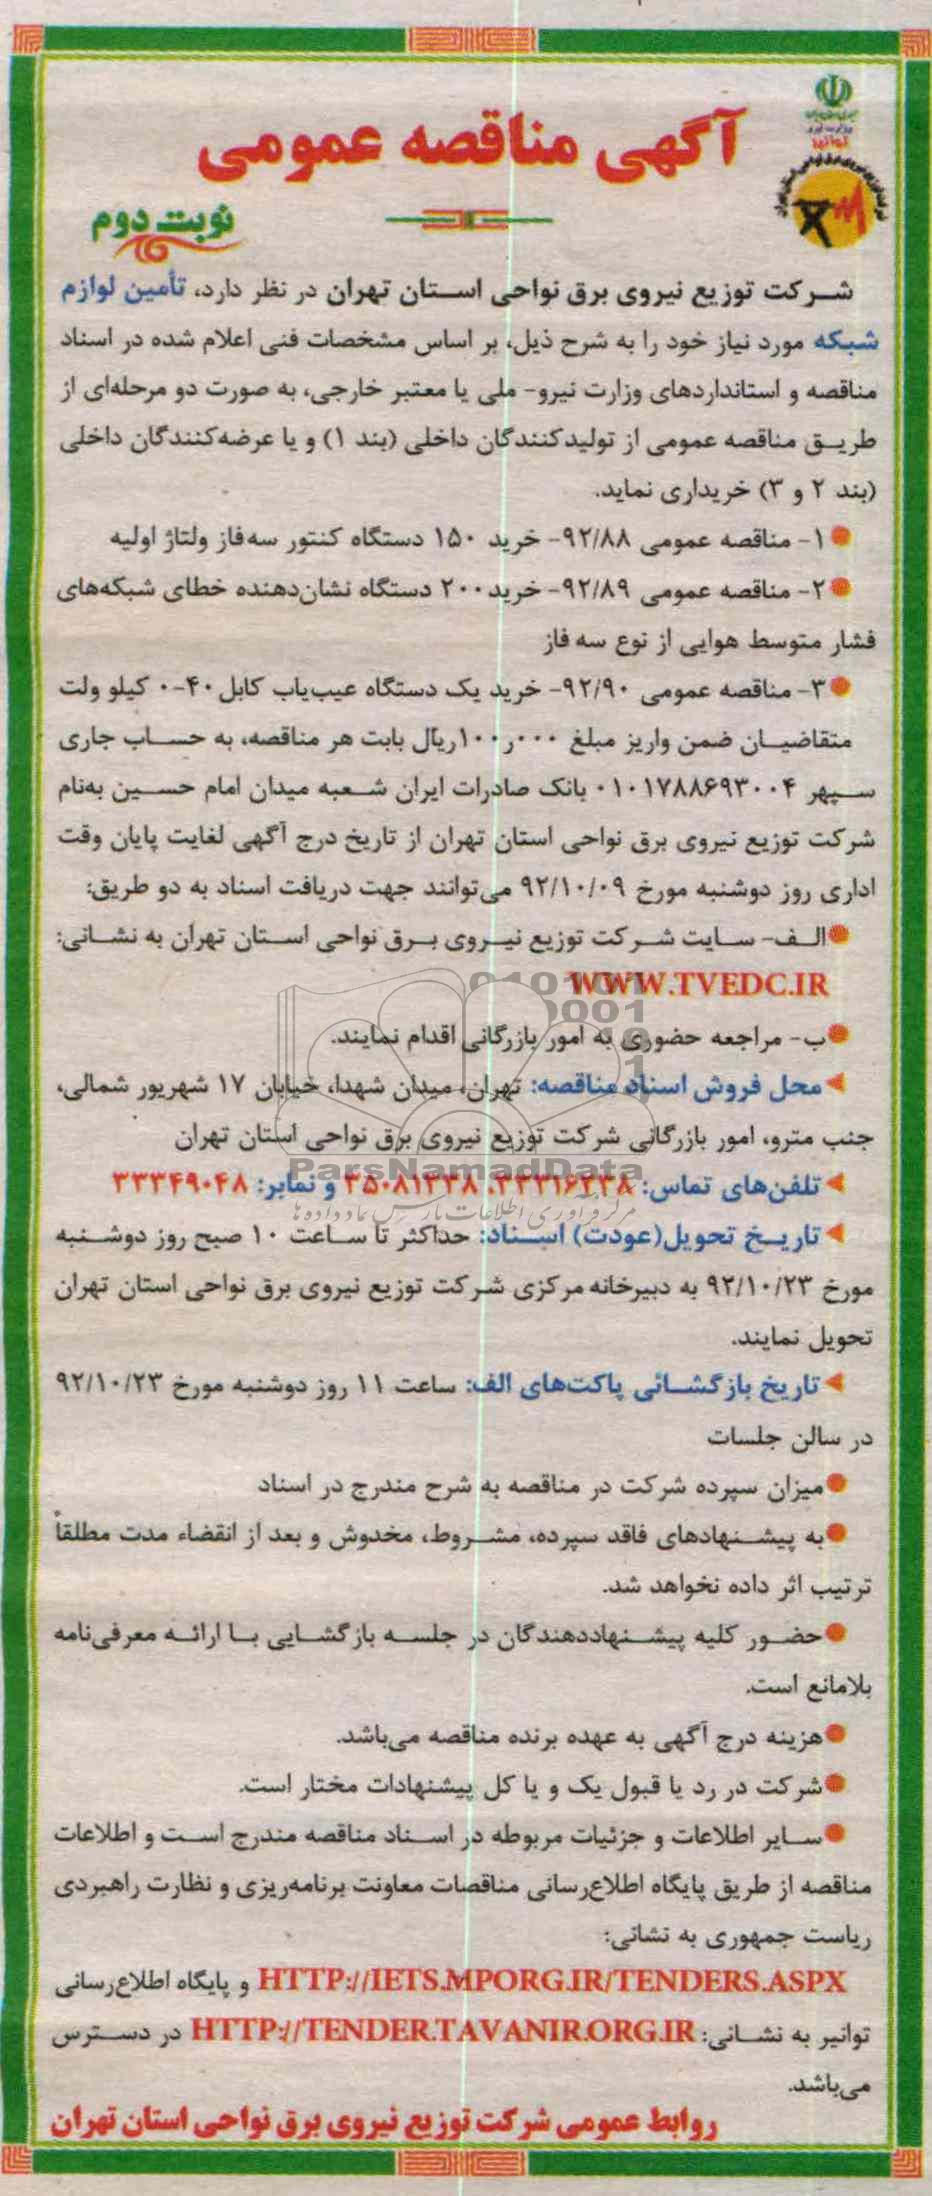 آگهی مناقصه عمومی
نوبت دوم
شرکت توزیع نیروی برق نواحی استان تهران در نظر دارد، تأمین لوازم
شبکه مورد نیاز خود را به شرح ذیل، بر اساس مشخصات فنی اعلام شده در اسناد
مناقصه و استانداردهای وزارت نیرو- ملی یا معتبر خارجی، به صورت دو مرحله‌ای از
طریق مناقصه عمومی از تولیدکنندگان داخلی (بند ۱) و یا عرضه‌کنندگان داخلی
(بند ۲ و ۳) خریداری نماید.
۱- مناقصه عمومی ۹۲/۸۸- خرید ۱۵۰ دستگاه کنتور سه‌فاز ولتاژ اولیه
۲- مناقصه عمومی ۹۲/۸۹- خرید ۲۰۰ دستگاه نشان‌دهنده خطای شبکه‌های
فشار متوسط هوایی از نوع سه فاز
۳- مناقصه عمومی ۹۲/۹۰- خرید یک دستگاه عیب‌یاب کابل ۴۰-۰ کیلو ولت
متقاضیان ضمن واریز مبلغ ۱۰۰ر۰۰۰ ریال بابت هر مناقصه، به حساب جاری
سپهر ۰۱۰۱۷۸۸۶۹۳۰۰۴ بانک صادرات ایران شعبه میدان امام حسین به‌نام
شرکت توزیع نیروی برق نواحی استان تهران از تاریخ درج آگهی لغایت پایان وقت
اداری روز دوشنبه مورخ ۹۲/۱۰/۰۹ می‌توانند جهت دریافت اسناد به دو طریق:
الف- سایت شرکت توزیع نیروی برق نواحی استان تهران به نشانی:
WWW.TVEDC.IR
ب- مراجعه حضوری به امور بازرگانی اقدام نمایند.
محل فروش اسناد مناقصه: تهران، میدان شهدا، خیابان ۱۷ شهریور شمالی،
جنب مترو، امور بازرگانی شرکت توزیع نیروی برق نواحی استان تهران
ParsNamadData
تلفن‌های تماس: ۳۳۳۱۶۲۳۸، ۳۵۰۸۱۲۳۸ و نمابر: ۳۳۳۴۹۰۴۸
مرکز فرآوری اطلاعات پارس نماد داده‌ها
تاریخ تحویل(عودت) اسناد: حداکثر تا ساعت ۱۰ صبح روز دوشنبه
مورخ ۹۲/۱۰/۲۳ به دبیرخانه مرکزی شرکت توزیع نیروی برق نواحی استان تهران
تحویل نمایند.
تاریخ بازگشائی پاکت‌های الف: ساعت ۱۱ روز دوشنبه مورخ ۹۲/۱۰/۲۳
در سالن جلسات
میزان سپرده شرکت در مناقصه به شرح مندرج در اسناد
به پیشنهادهای فاقد سپرده، مشروط، مخدوش و بعد از انقضاء مدت مطلقاً
ترتیب اثر داده نخواهد شد.
حضور کلیه پیشنهاددهندگان در جلسه بازگشایی با ارائه معرفی‌نامه
بلامانع است.
هزینه درج آگهی به عهده برنده مناقصه می‌باشد.
شرکت در رد یا قبول یک و یا کل پیشنهادات مختار است.
سایر اطلاعات و جزئیات مربوطه در اسناد مناقصه مندرج است و اطلاعات
مناقصه از طریق پایگاه اطلاع‌رسانی مناقصات معاونت برنامه‌ریزی و نظارت راهبردی
ریاست جمهوری به نشانی:
HTTP://IETS.MPORG.IR/TENDERS.ASPX و پایگاه اطلاع‌رسانی
توانیر به نشانی: HTTP://TENDER.TAVANIR.ORG.IR در دسترس
می‌باشد.
روابط عمومی شرکت توزیع نیروی برق نواحی استان تهران